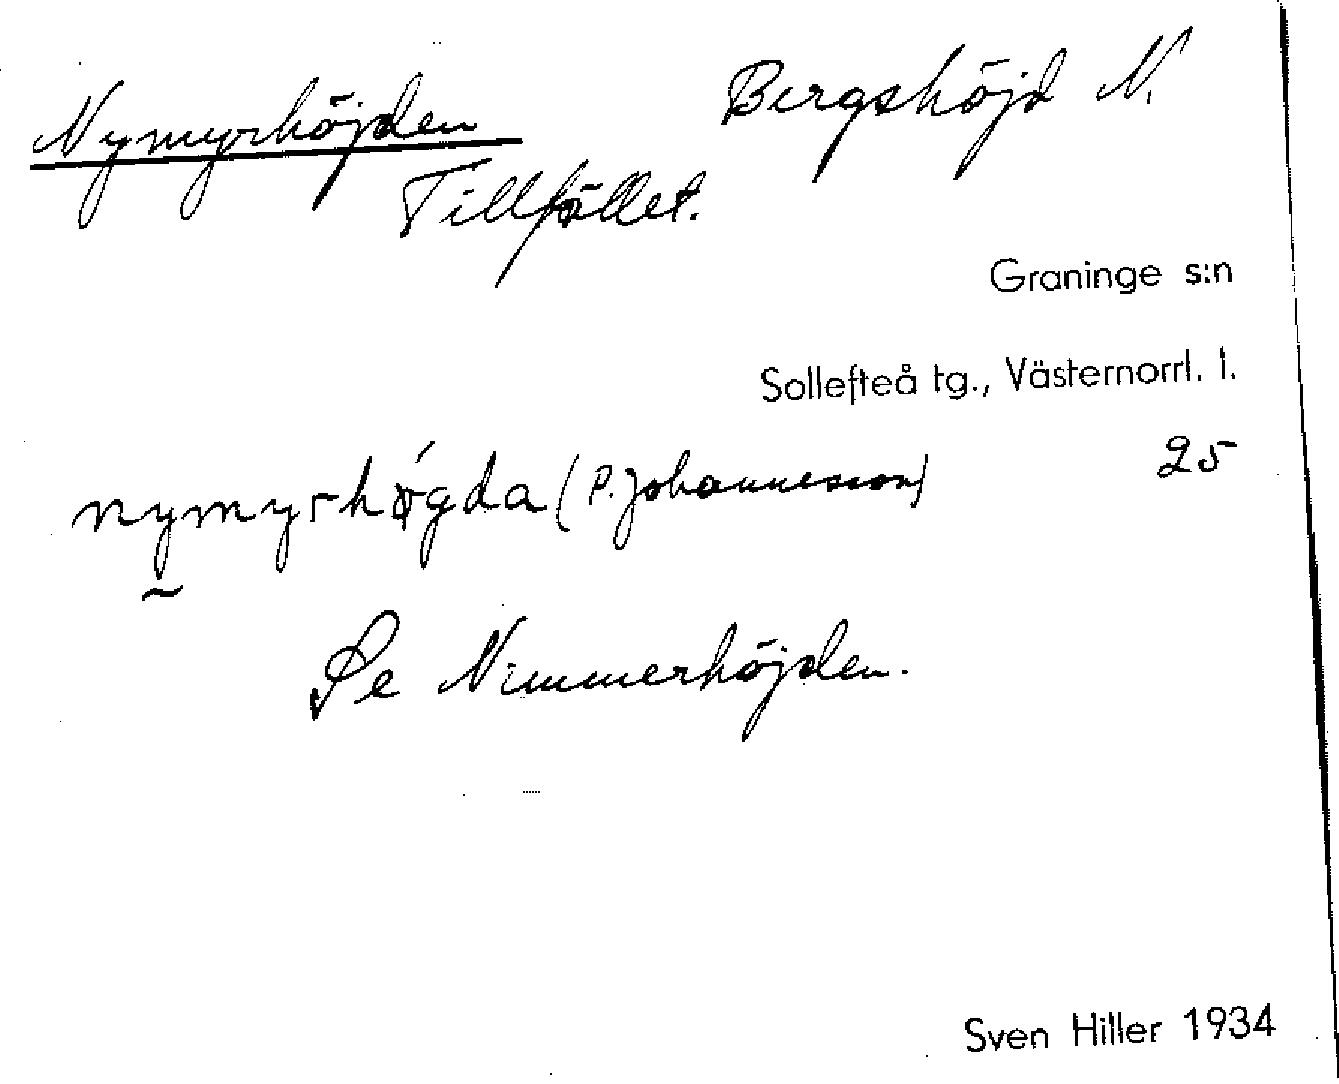 Nymyrhöjden Bergshöjd N.
Tillfället.
Graninge s:n
Sollefteå tg., Västernorrl. l.
nymyrhǿgda (P. Johannesson) 25
Se Nimmerhöjden.
Sven Hiller 1934